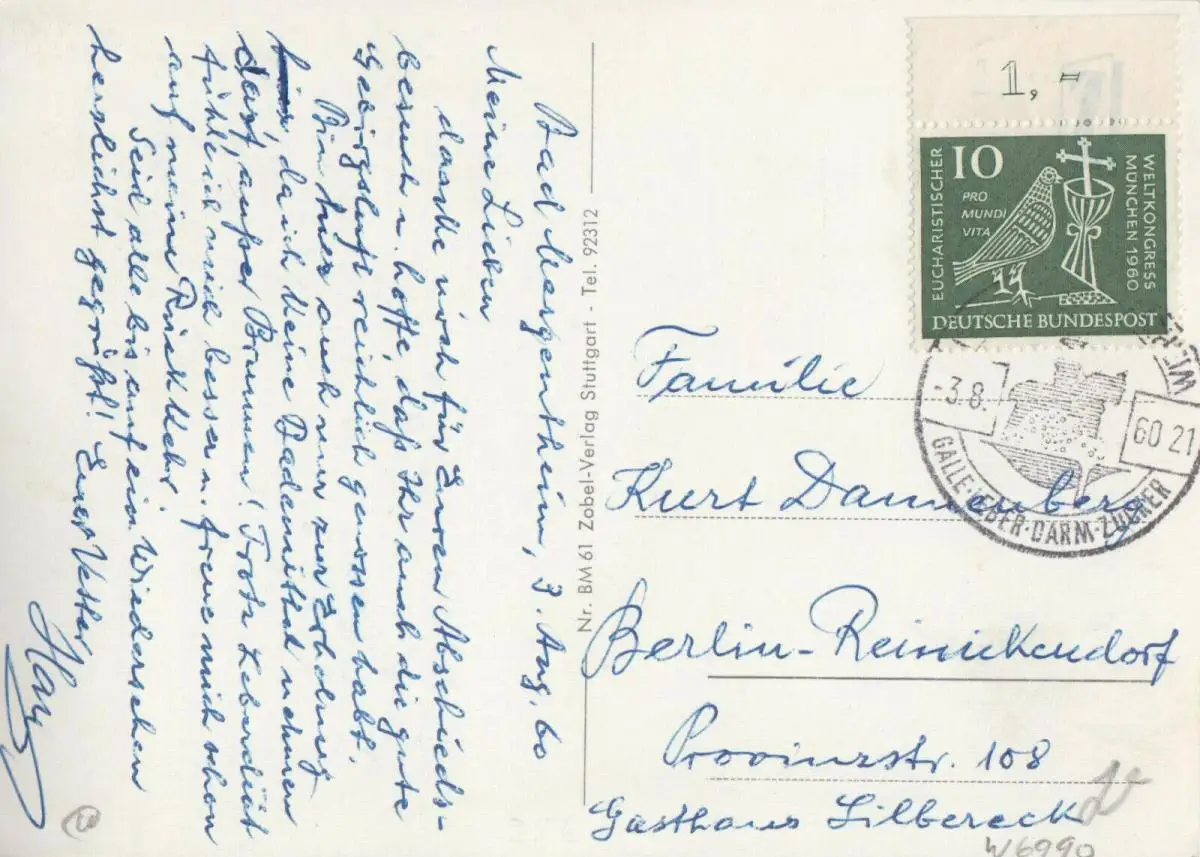 Bad Mergentheim, 3. Aug. 60
Meine Lieben
danke noch für Euren Abschieds-
besuch u. hoffe, daß Ihr auch die gute
Gebirgsluft reichlich genossen habt.
Bin hier auch nur zur Erholung
da ich keine Badearbeit nehmen
darf, außer Brunnen! Trotz Leberdiät
fühle ich mich besser u. freue mich schon
auf meine Rückkehr.
Seid alle bis auf ein Wiedersehen
herzlichst gegrüßt! Euer Vetter
Nr. BM 61 Zobel-Verlag Stuttgart - Tel. 92312
1,-
10
PRO
MUNDI
VITA
EUCHARISTISCHER
WELTKONGRESS
MÜNCHEN 1960
DEUTSCHE BUNDESPOST
-3.8.
60.21
GALLE-LEBER-DARM-ZUCKER
Familie
Kurt Dannenberg
Berlin-Reinickendorf
Provinzstr. 108
Gasthaus Silbereck
W6990